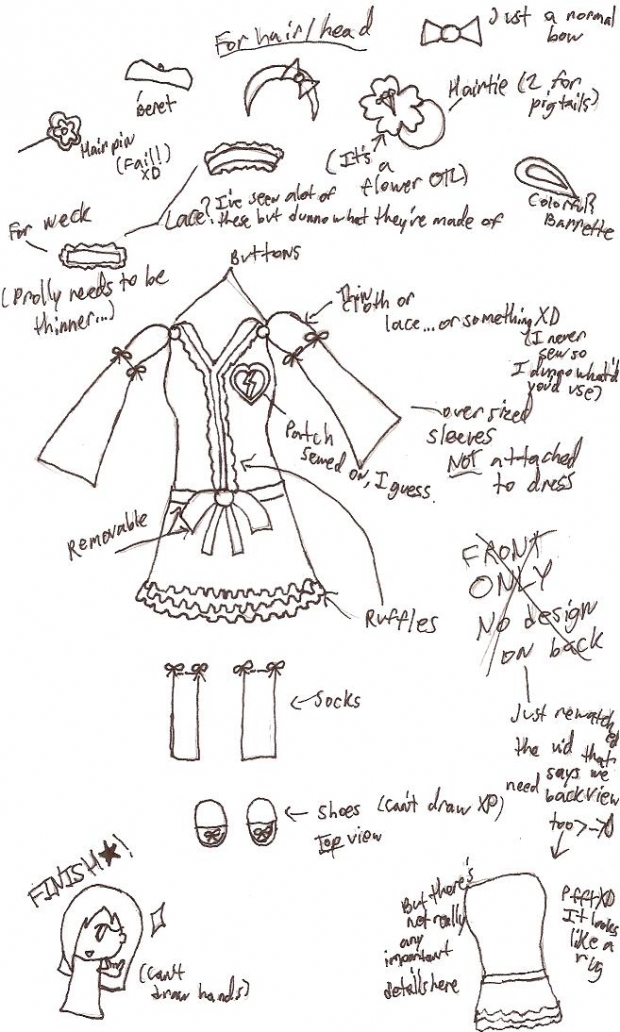 For hair/head
Just a normal
bow
Beret
Hairtie (2 for
pigtails)
Hairpin
(Fail!)
XD
(It's
a
flower OTL)
Colorful?
Barrette
Lace? I've seen alot of
these but dunno what they're made of
For neck
(Prolly needs to be
thinner...)
Buttons
Thin
cloth or
lace...or something XD
(I never
sew so
I dunno what'd
you'd use)
oversized
sleeves
NOT attached
to dress
Patch
sewed on, I guess.
Removable
Ruffles
FRONT
ONLY
No design
on back
Just rewatched
the vid that
says we
need back view
too >_>
Socks
Shoes (can't draw XP)
Top view
FINISH★!
(can't
draw hands)
But there's
not really
any
important
details here
Pfft XD
It looks
like a
rug